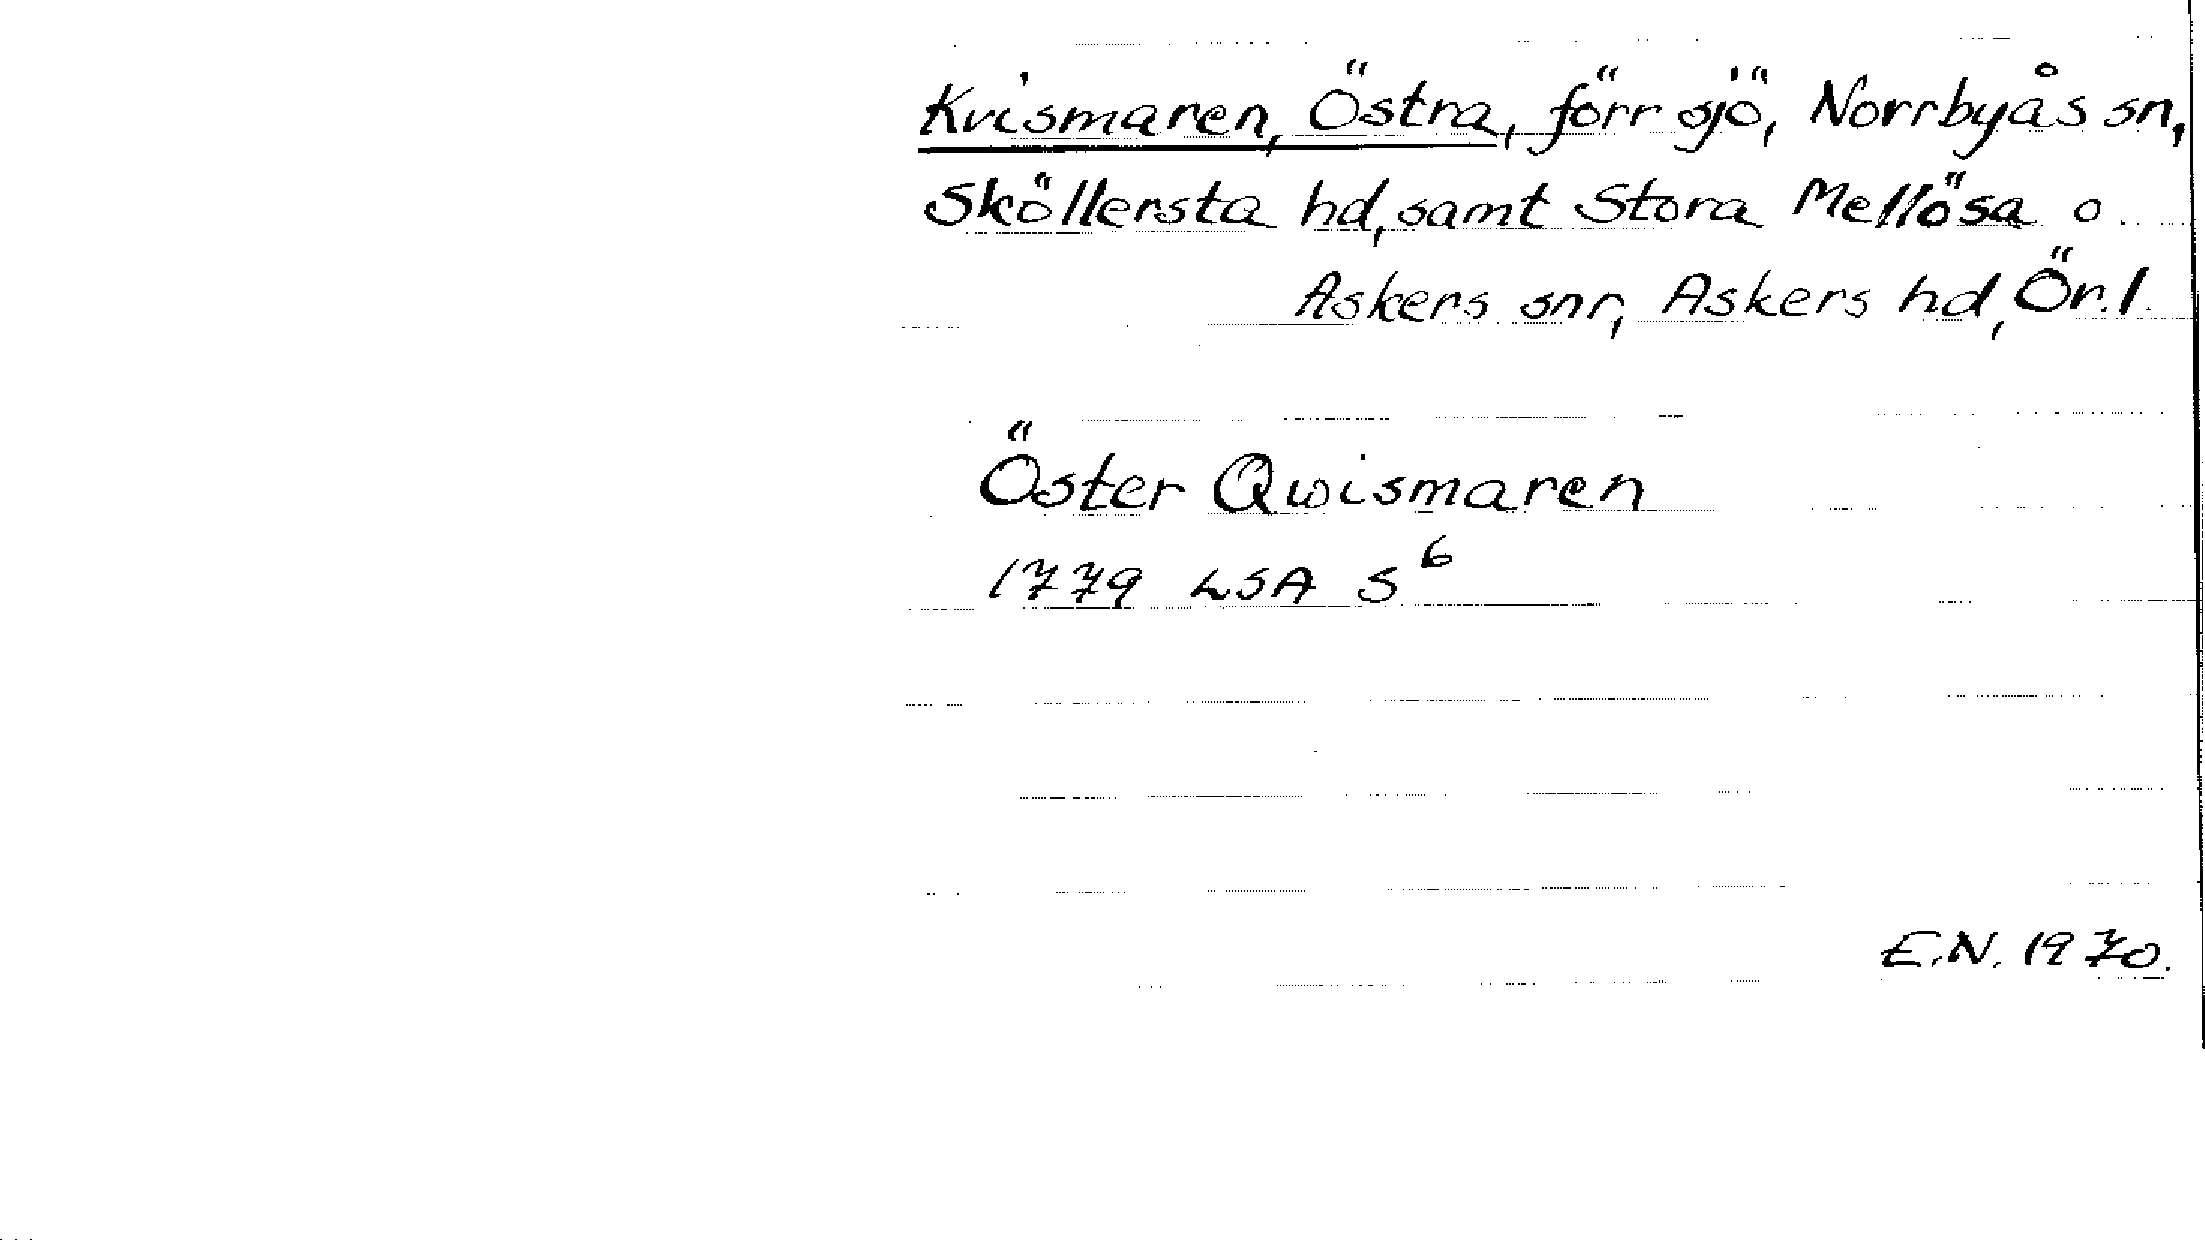 Kvismaren, Östra, förr sjö, Norrbyås sn,
Sköllersta hd, samt Stora Mellösa o
Askers snr, Askers hd, Ör.l.
Öster Qwismaren
1779 LSA S⁶
E.N. 1970.